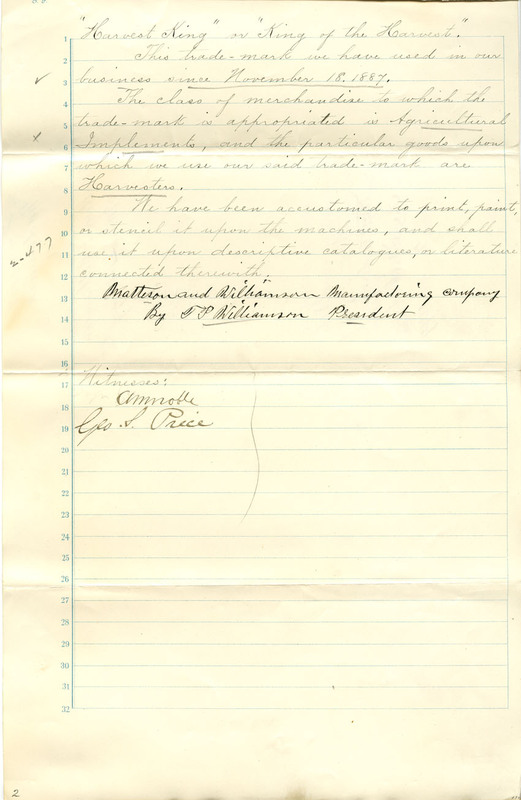 "Harvest King" or "King of the Harvest".
This trade-mark we have used in our
business since November 18, 1887.
The class of merchandise to which the
trade-mark is appropriated is Agricultural
Implements, and the particular goods upon
which we use our said trade-mark are
Harvesters.
We have been accustomed to print, paint,
or stencil it upon the machines, and shall
use it upon descriptive catalogues, or literature
connected therewith.
Matteson and Williamson Manufactoring company
By T P Williamson President
Witnesses:
Geo. S. Price
1
2
3
4
5
6
7
8
9
10
11
12
13
14
15
16
17
18
19
20
21
22
23
24
25
26
27
28
29
30
31
32
2